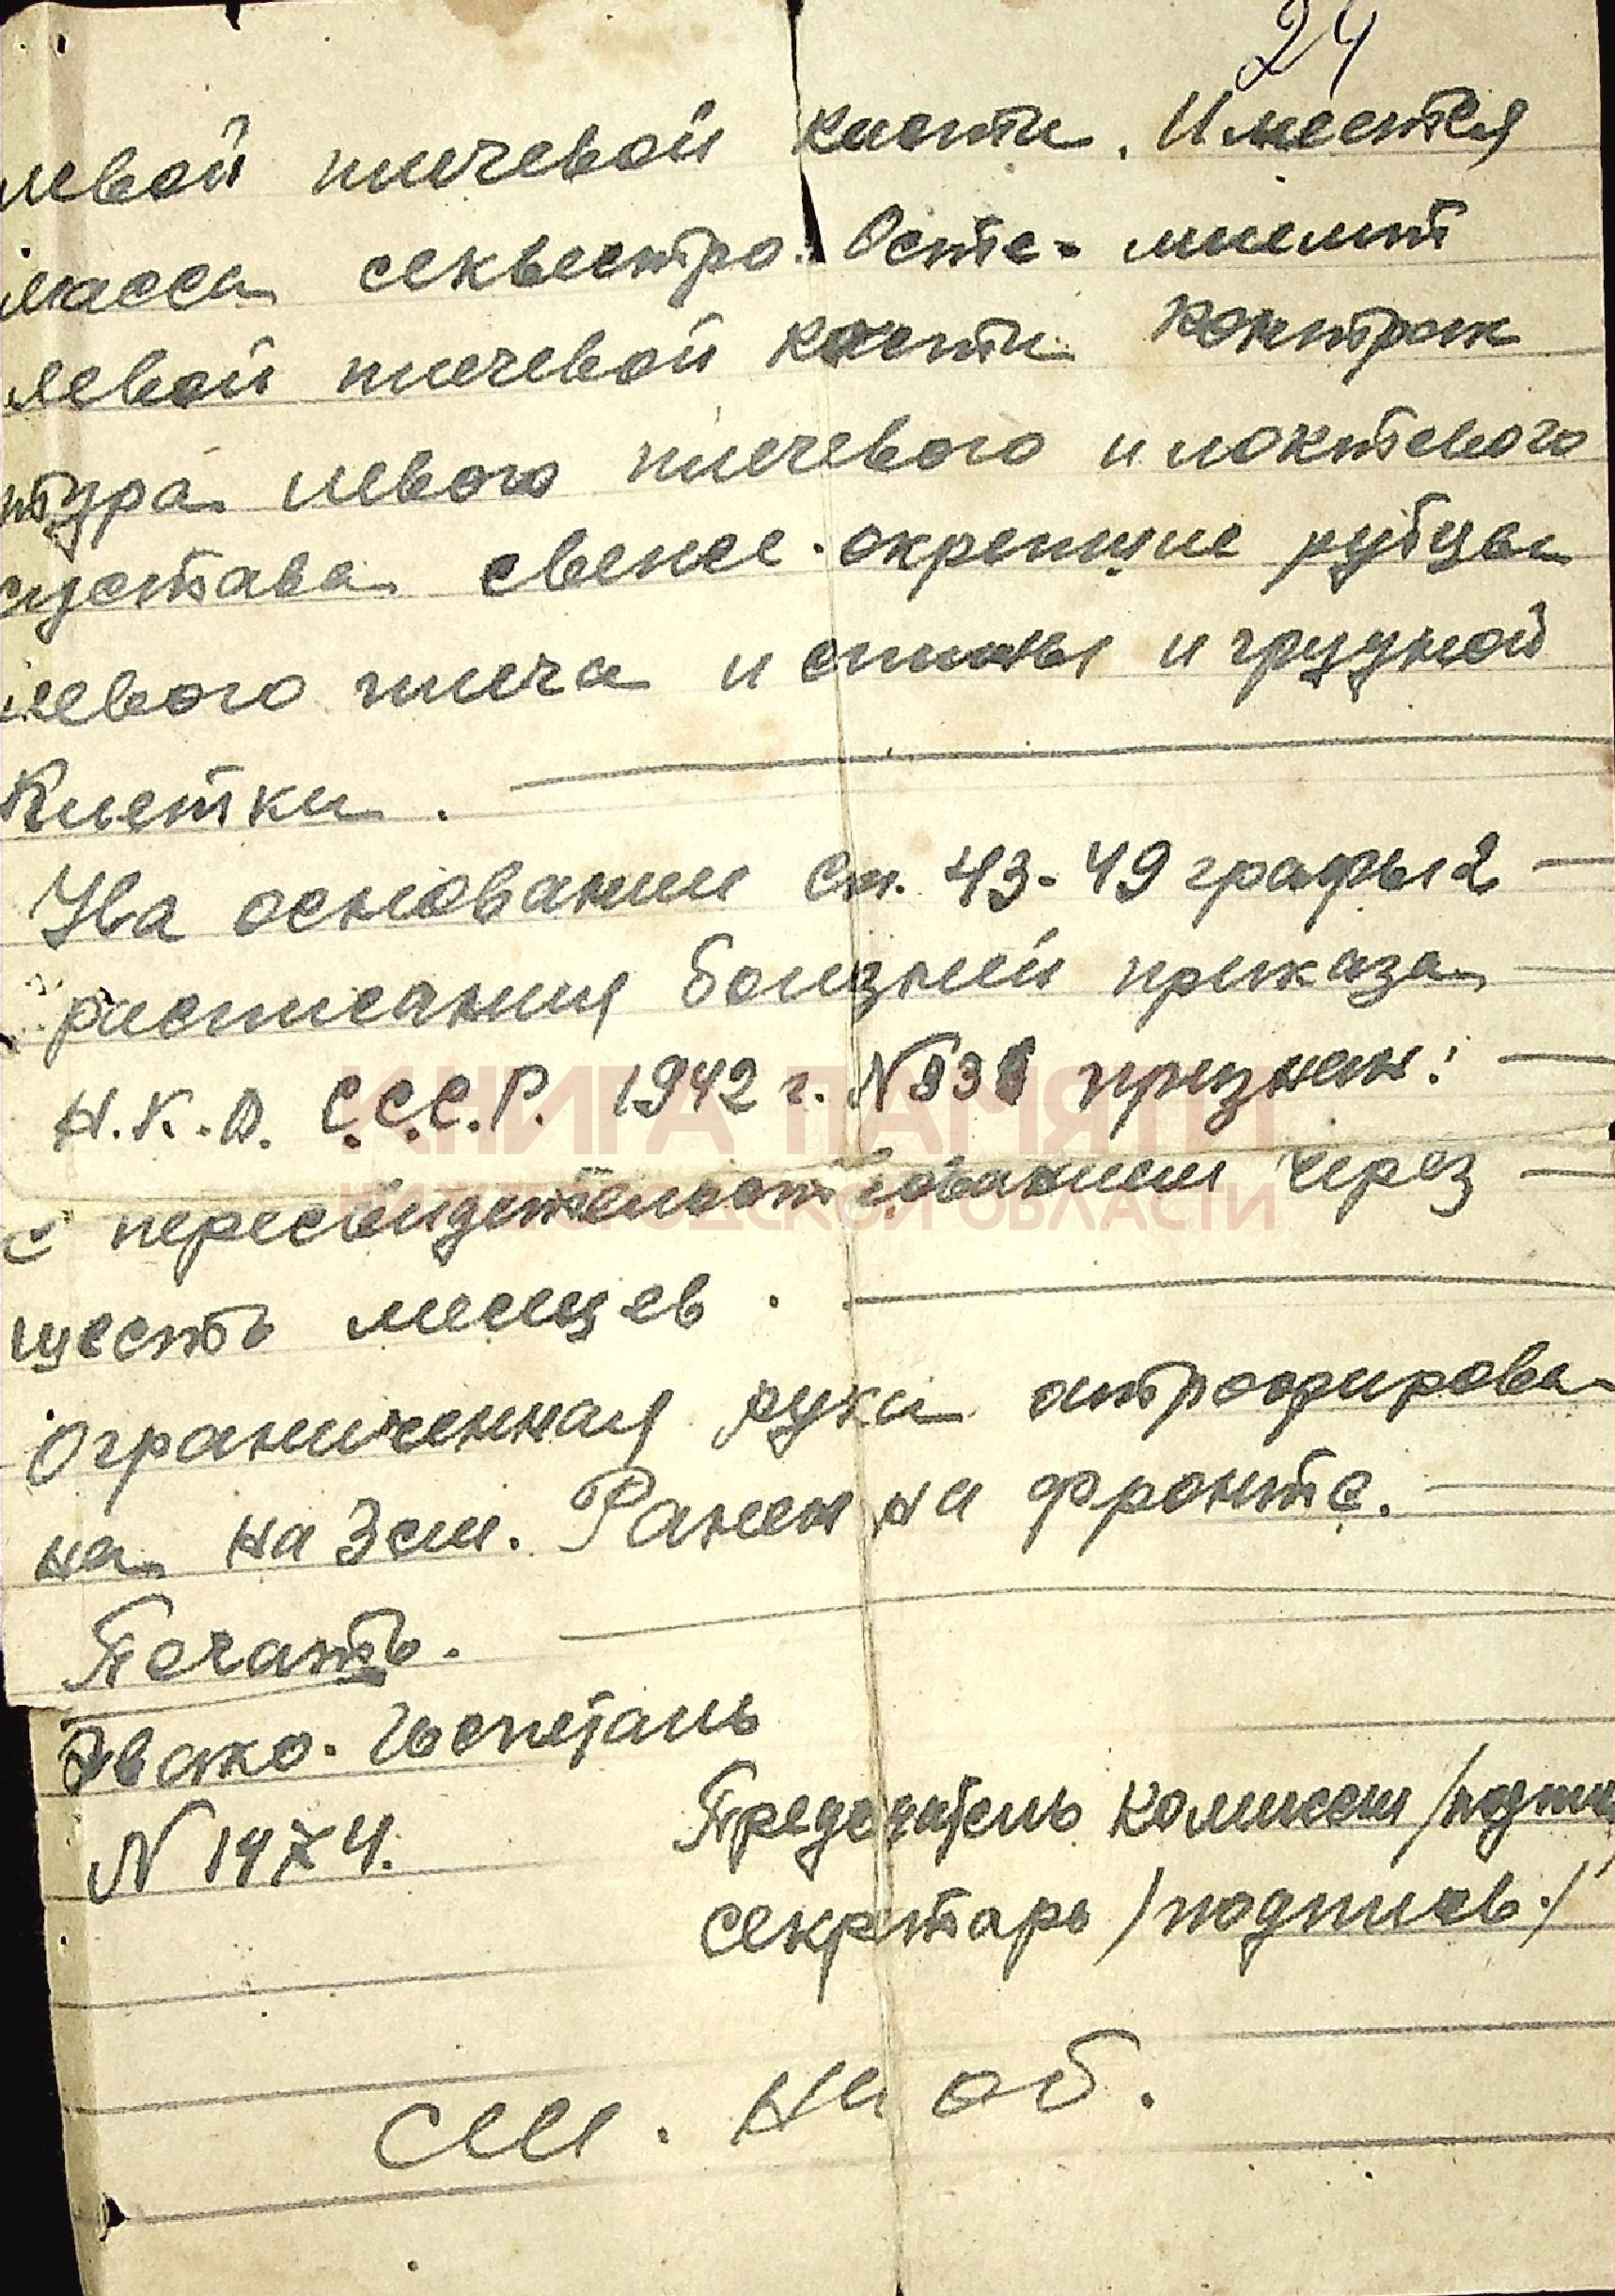 24
левой плечевой кости. Имеется
масса секвестро. Осте-миелит
левой плечевой кости контрак
тура левого плечевого и локтевого
сустава свеже-окрепшие рубцы
левого плеча и спины и грудной
клетки.
На основании ст. 43-49 графы 2
расписания болезней приказа
Н.К.О. С.С.С.Р. 1942 г. № 336 признан:
КНИГА ПАМЯТИ
с пересвидетельствованием через
НИЖЕГОРОДСКОЙ ОБЛАСТИ
шесть месяцев.
Ограниченная рука атрофирова-
на на 3 см. Ранен на фронте.
Печать.
Эвако-Госпиталь
N 1474.
Председатель комиссии /подпи
секретарь /подпись./
см. на об.